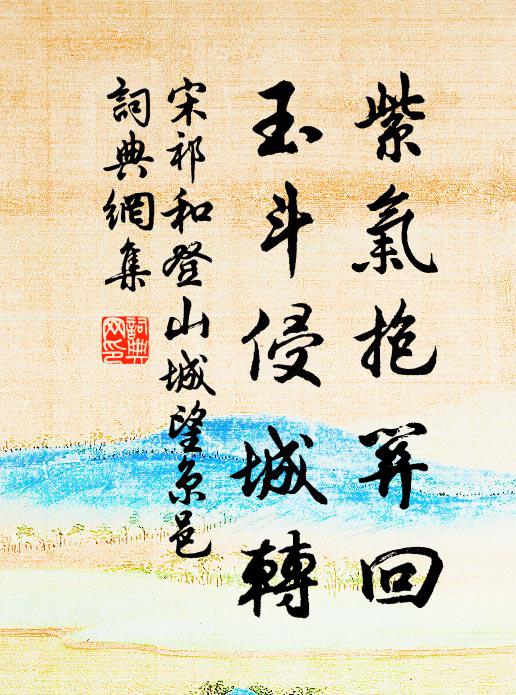 紫氣抱關回
玉斗侵城轉
宋祁和登山城望京邑
詞典網集
詞典网印